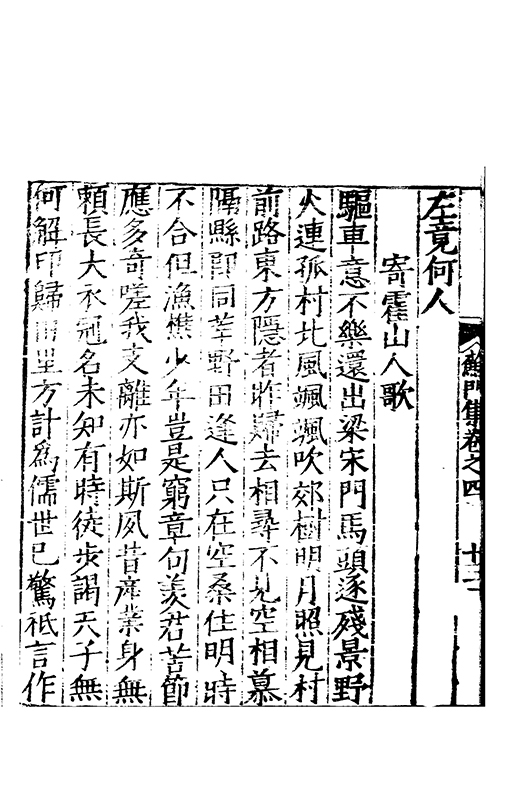 蘇門集卷之四
左竟何人
寄霍山人歌
驅車意不樂還出梁宋門馬頭逐殘景野
火連孤村北風颯颯吹郊樹明月照見村
前路東方隱者昨歸去相尋不見空相慕
隔縣即同莘野田逢人只在空桑住明時
不合但漁樵少年豈是窮章句羨君苦節
應多奇嗟我支離亦如斯夙昔產業身無
賴長大衣冠名未知有時徒步謁天子無
何解印歸田里方計爲儒世已驚祇言作